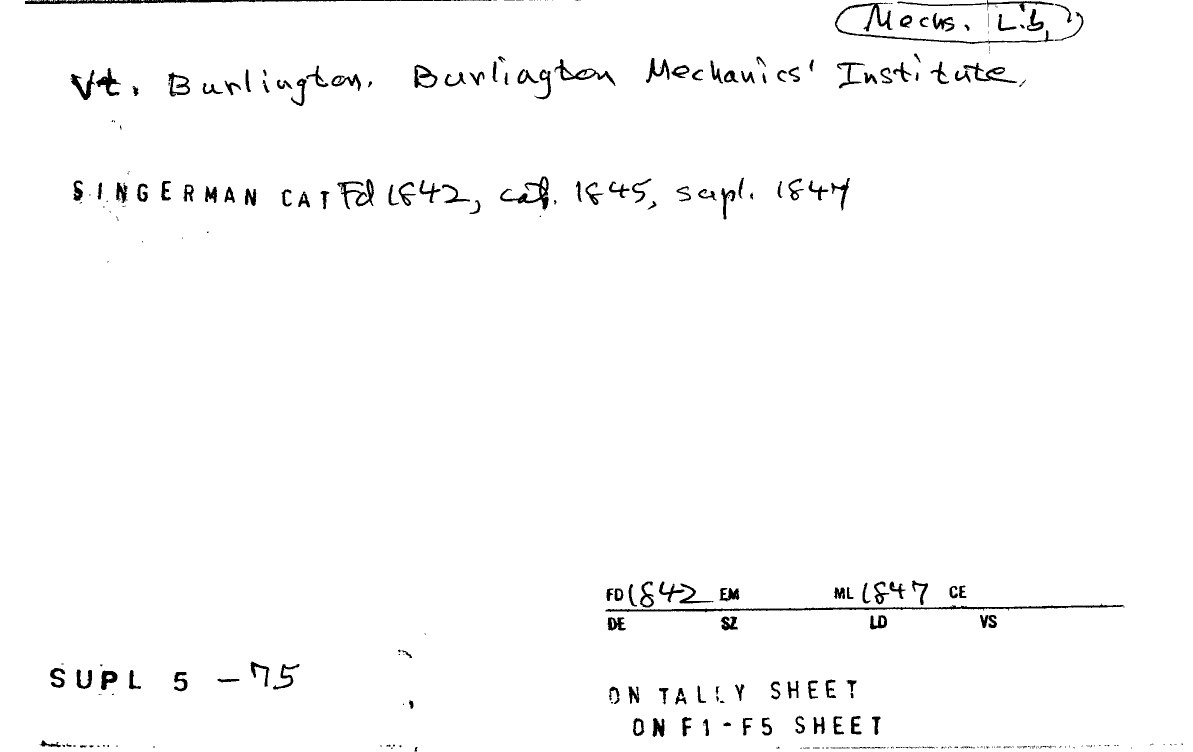 Mechs. Lib.
Vt. Burlington. Burlington Mechanics' Institute.
SINGERMAN CAT Fd 1842, cat. 1845, supl. 1847
FD 1842 EM ML 1847 CE
DE SZ LD VS
SUPL 5 - 75
ON TALLY SHEET
ON F1-F5 SHEET